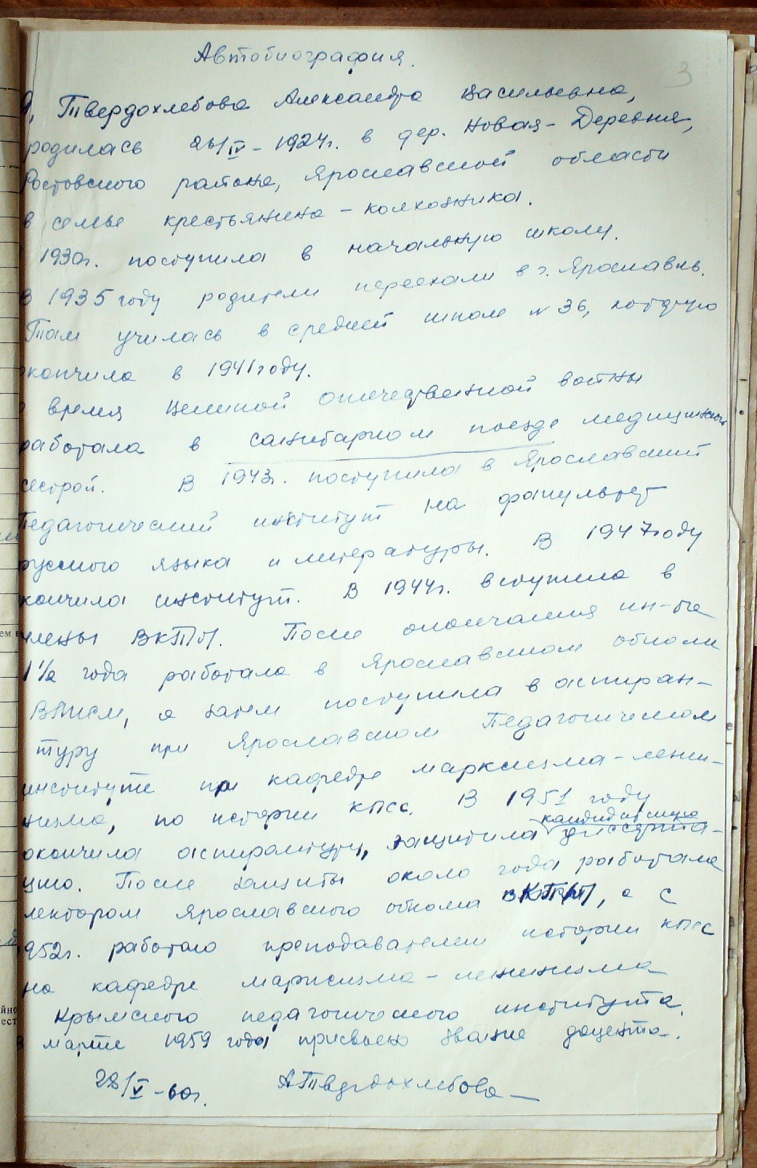 Автобиография.
3
Я, Твердохлебова Александра Васильевна,
родилась 26/IV-1924г. в дер. Новая-Деревня,
Ростовского района, Ярославской области
в семье крестьянина-колхозника.
1930г. поступила в начальную школу.
В 1935 году родители переехали в г. Ярославль.
Там училась в средней школе №36, которую
окончила в 1941 году.
время Великой отечественной войны
работала в санитарном поезде медицинской
сестрой. В 1943г. поступила в Ярославский
Педагогический институт на факультет
русского языка и литературы. В 1947 году
кончила институт. В 1944г. вступила в
члены ВКП/б/. После окончания ин-та
1 1/2 года работала в Ярославском обкоме
ВЛКСМ, а затем поступила в аспиран-
туру при Ярославском Педагогическом
институте при кафедре марксизма-лени-
низма, по истории КПСС. В 1951 году
окончила аспирантуру, защитила кандидатскую диссерта-
цию. После защиты около года работала
лектором Ярославского обкома ВКП/б/, а с
1952г. работаю преподавателем истории КПСС
на кафедре марксизма-ленинизма
Крымского педагогического института.
В марте 1959 года присвоено звание доцента.
28/V-60г. АТвердохлебова